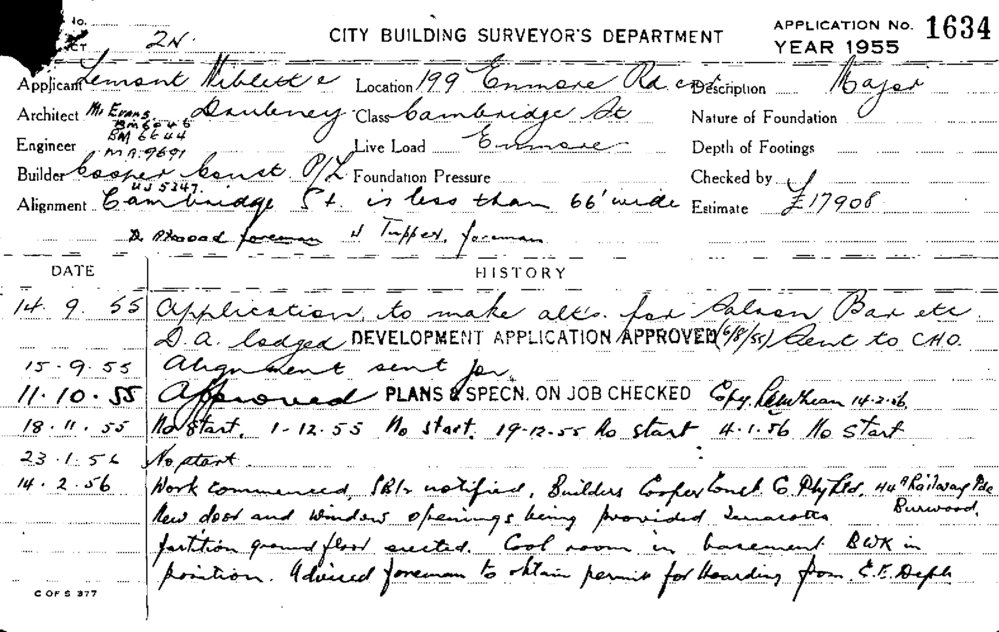 No. CITY BUILDING SURVEYOR'S DEPARTMENT APPLICATION No. 1634
CT 2N. YEAR 1955
Applicant Lemont Niblett & Location 199 Enmore Rd cor Description Major
Architect Mr Evans Daubney Class Cambridge St Nature of Foundation
BM6645
BM 6644
Engineer MA.9691 Live Load Enmore Depth of Footings
Builder Cooper Const P/L Foundation Pressure Checked by
UJ5347.
Alignment Cambridge St. is less than 66' wide Estimate £17908
foreman Tupper, foreman
DATE HISTORY
14.9.55 Application to make alts. for Saloon Bar etc.
D.A. lodged DEVELOPMENT APPLICATION APPROVED (6/8/55) Sent to CHO.
15.9.55 Alignment sent for
11.10.55 Approved PLANS & SPECN. ON JOB CHECKED 14.2.56.
18.11.55 No start. 1-12.55 No start. 19-12-55 No start 4.1.56 No start
23.1.56 No start
14.2.56 Work commenced, notified, Builders Cooper Const. Co. Pty Ltd. 44A Railway Pde
Burwood.
New door and window openings being provided Terracotta
partition ground floor erected. Cool room in basement BWK in
position. Advised foreman to obtain permit for Hoarding from C.E. Dept.
C OF S 377